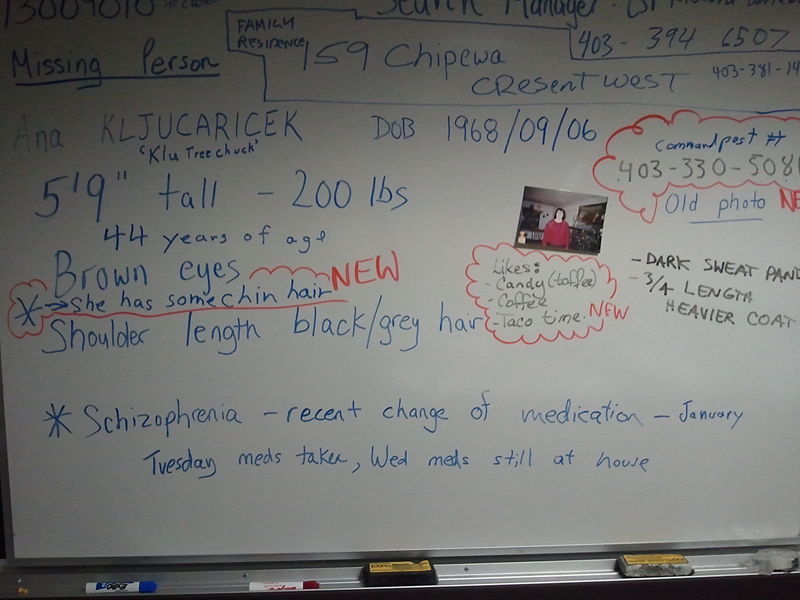 13009010
Search Manager:
Missing Person
FAMILY
RESIDENCE
159 Chipewa
CResent WEST
403- 394 6507
403-381-14
Ana KLJUCARICEK DOB 1968/09/06
'Klu Tree chuck'
Command post #
403-330-508
Old photo NE
5'9" tall - 200 lbs
44 years of age
Brown eyes
NEW
* → She has some chin hair
Shoulder length black/grey hair
Likes:
- Candy (toffee)
- Coffee
- Taco time.
NEW
- DARK SWEAT PAN
- 3/4 LENGTH
HEAVIER COAT
* Schizophrenia - recent change of medication - January
Tuesday meds taken, Wed meds still at house
EXPO